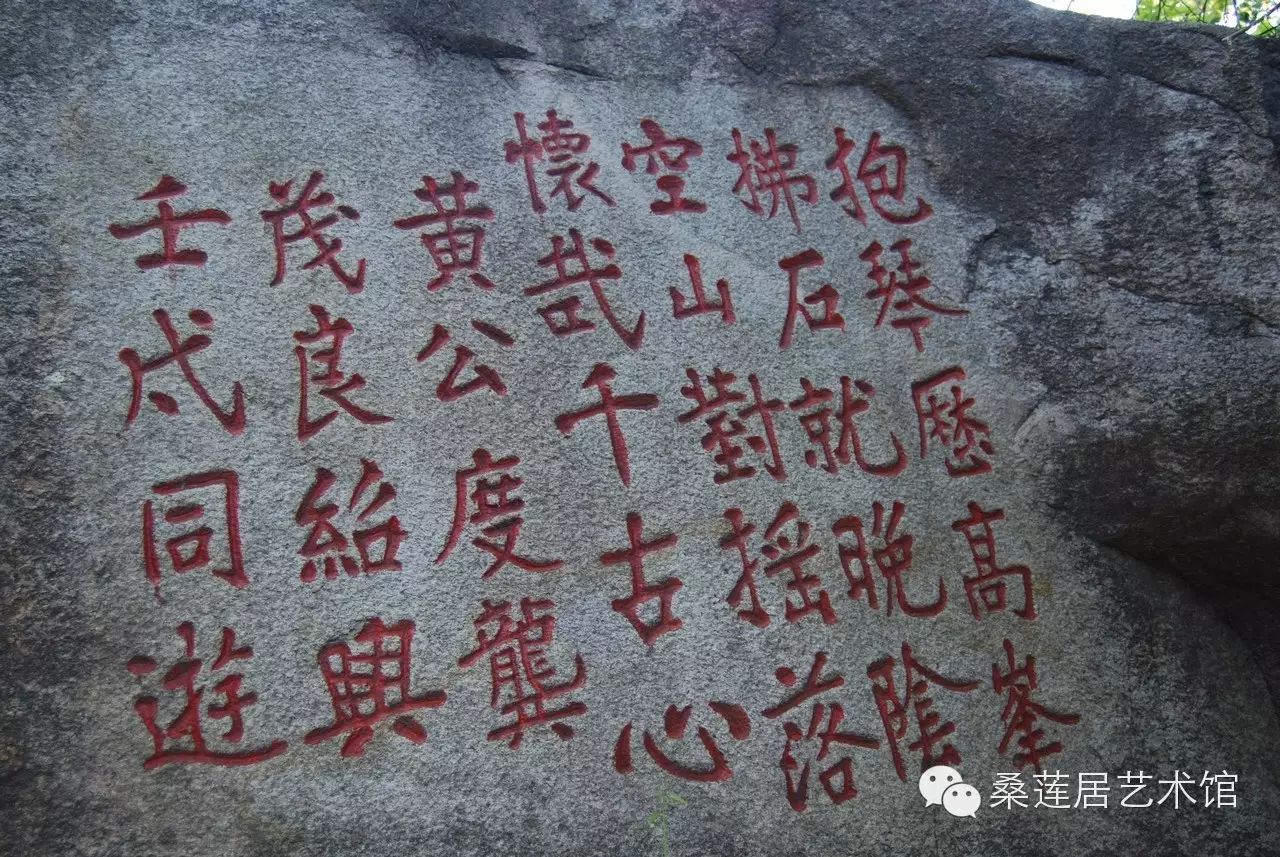 抱琴歷高峯
拂石就晚陰
空山對搖落
懷哉千古心
黃公度龔
茂良紹興
壬戌同遊
桑莲居艺术馆